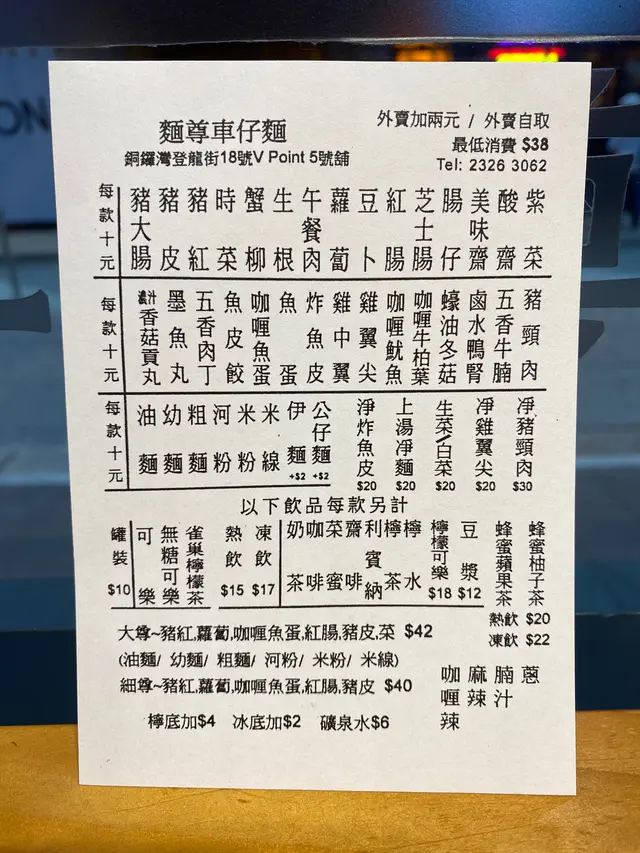 麵尊車仔麵
銅鑼灣登龍街18號V Point 5號舖
外賣加兩元 / 外賣自取
最低消費 $38
Tel: 2326 3062
每款十元
豬大腸
豬皮
豬紅
時菜
蟹柳
生根
午餐肉
蘿蔔
豆卜
紅腸
芝士腸
腸仔
美味齋
酸齋
紫菜
每款十元
濃汁香菇貢丸
墨魚丸
五香肉丁
魚皮餃
咖喱魚蛋
魚蛋
炸魚皮
雞中翼
雞翼尖
咖喱魷魚
咖喱牛柏葉
蠔油冬菇
鹵水鴨腎
五香牛腩
豬頸肉
每款十元
油麵
幼麵
粗麵
河粉
米粉
米線
伊麵 +$2
公仔麵 +$2
淨炸魚皮 $20
上湯淨麵 $20
生菜/白菜 $20
凈雞翼尖 $20
凈豬頸肉 $30
以下飲品每款另計
罐裝 $10
可樂
無糖可樂
雀巢檸檬茶
熱飲 $15
凍飲 $17
奶茶
咖啡
菜蜜
齋啡
利賓納
檸茶
檸水
檸檬可樂 $18
豆漿 $12
蜂蜜蘋果茶
蜂蜜柚子茶
熱飲 $20
凍飲 $22
大尊~豬紅,蘿蔔,咖喱魚蛋,紅腸,豬皮,菜 $42
(油麵/ 幼麵/ 粗麵/ 河粉/ 米粉/ 米線)
細尊~豬紅,蘿蔔,咖喱魚蛋,紅腸,豬皮 $40
檸底加$4 冰底加$2 礦泉水$6
咖喱辣
麻辣
腩汁
蔥